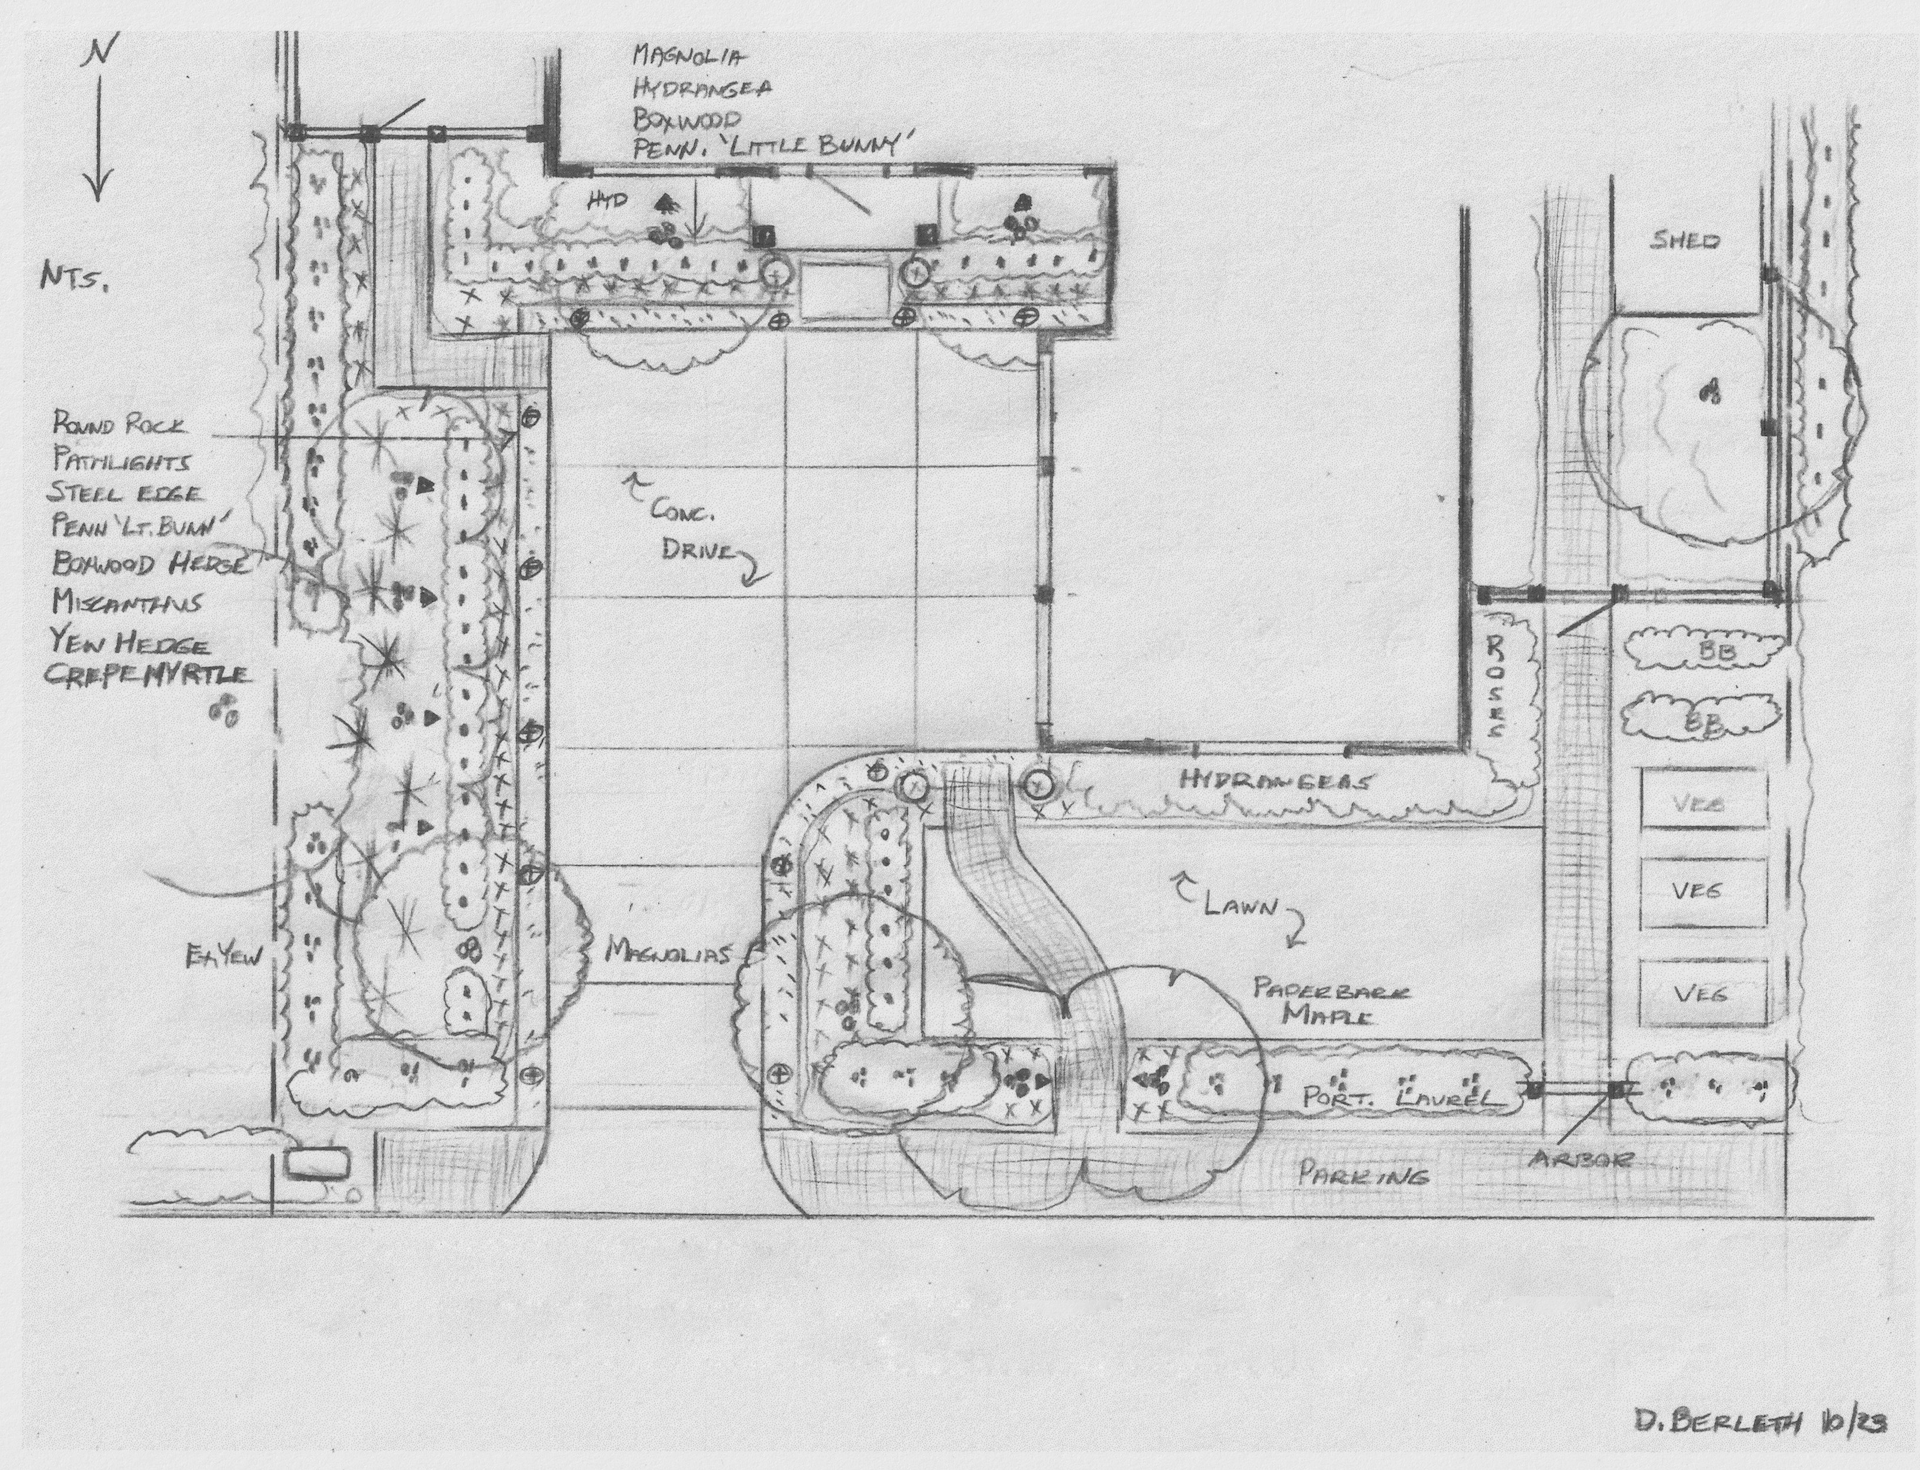 N
NTS.
MAGNOLIA
HYDRANGEA
BOXWOOD
PENN. 'LITTLE BUNNY'
HYD
SHED
ROUND ROCK
PATHLIGHTS
STEEL EDGE
PENN 'LT. BUNN'
BOXWOOD HEDGE
MISCANTHUS
YEW HEDGE
CREPE MYRTLE
CONC.
DRIVE
ROSES
BB
BB
HYDRANGEAS
VEG
VEG
VEG
LAWN
MAGNOLIAS
PAPERBARK
MAPLE
PORT. LAUREL
ARBOR
PARKING
D. BERLETH 10/23